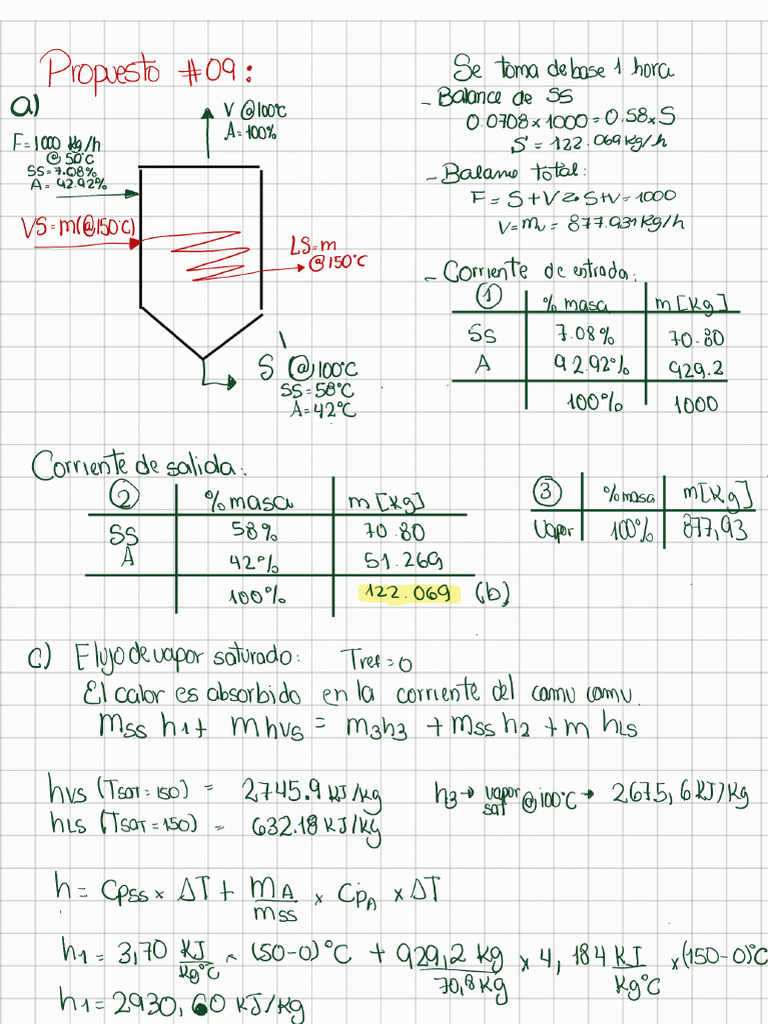 Propuesto #09:
a)
V @100°C
A=100%
F=1000 kg/h
@50°C
SS=7.08%
A=42.92%
VS=m(@150°C)
LS=m
@150°C
S @100°C
SS=58°C
A=42°C
Se toma de base 1 hora
- Balance de SS
0.0708×1000=0.58×S
S=122.069kg/h
- Balance total:
F=S+V S+V=1000
V=m = 877.931kg/h
- Corriente de entrada:
① % masa m[Kg]
SS 7.08% 70.80
A 92.92% 929.2
100% 1000
Corriente de salida:
② % masa m[Kg]
SS 58% 70.80
A 42% 51.269
100% 122.069 (b)
③ % masa m[Kg]
Vapor 100% 877,93
c) Flujo de vapor saturado: Tref=0
El calor es absorbido en la corriente del camu camu.
mss h1+ m hvs = m3h3 + mss h2 + m hLs
hvs (Tsat=150) = 2745.9 KJ/Kg
hLs (Tsat=150) = 632.18 KJ/Kg
h3→ vapor sat @100°C → 2675,6 KJ/Kg
h = Cpss × ΔT + mA/mss × CpA × ΔT
h1 = 3,70 KJ/Kg°C × (50-0)°C + 929,2 kg/70,8 Kg × 4,184 KJ/Kg°C × (150-0)°C
h1=2930,60 KJ/Kg